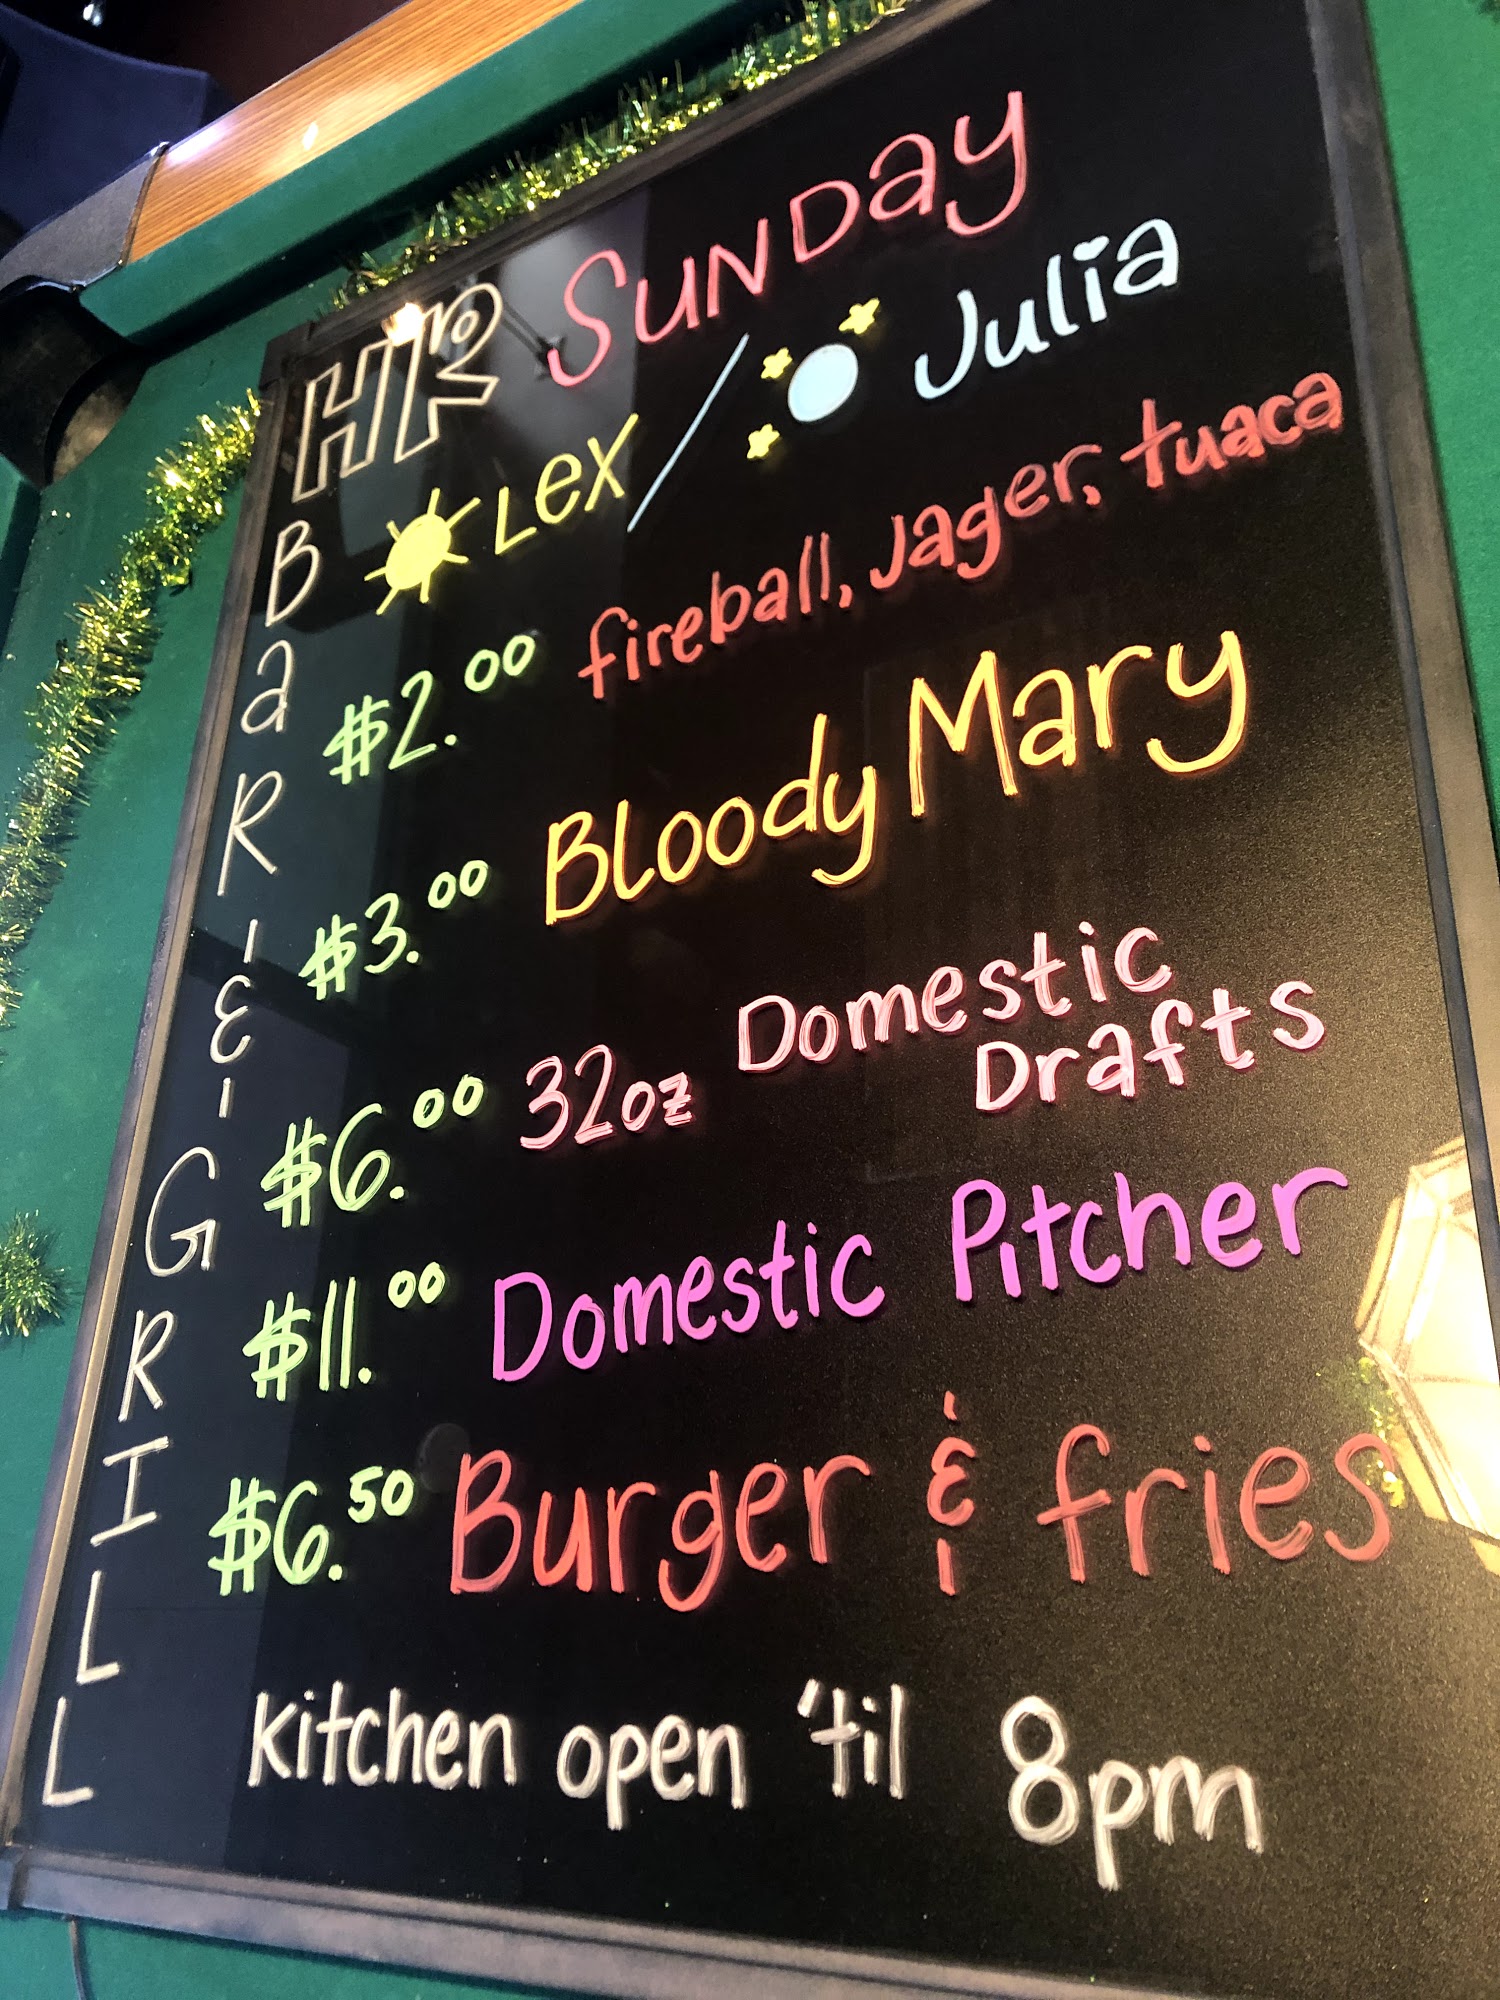 HR Sunday
Lex / Julia
$2.00 fireball, Jager, tuaca
$3.00 Bloody Mary
$6.00 32oz Domestic
Drafts
$11.00 Domestic Pitcher
$6.50 Burger & fries
Kitchen open 'til 8pm
BaR & GRILL